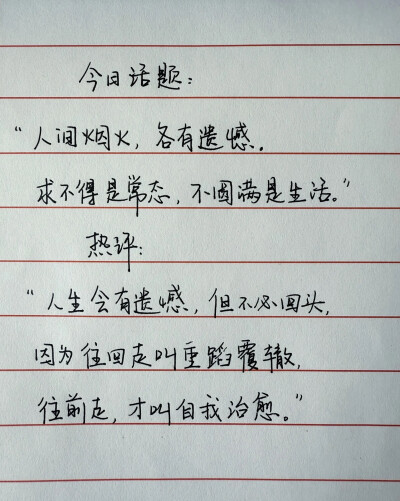 今日话题：
“人间烟火，各有遗憾。
求不得是常态，不圆满是生活。”
热评：
“人生会有遗憾，但不必回头，
因为往回走叫重蹈覆辙，
往前走，才叫自我治愈。”